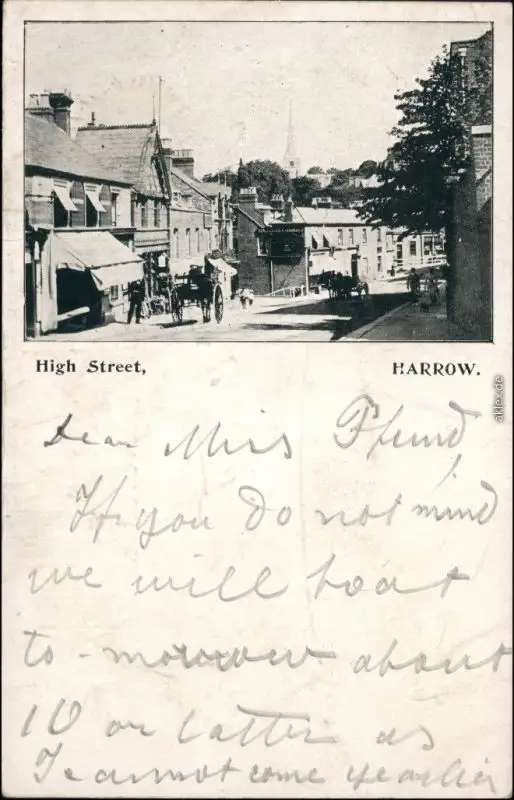 High Street, HARROW.
aklex.de
Dear Miss Pfund,
If you do not mind
we will boat
to-morrow about
10 or latter as
I cannot come